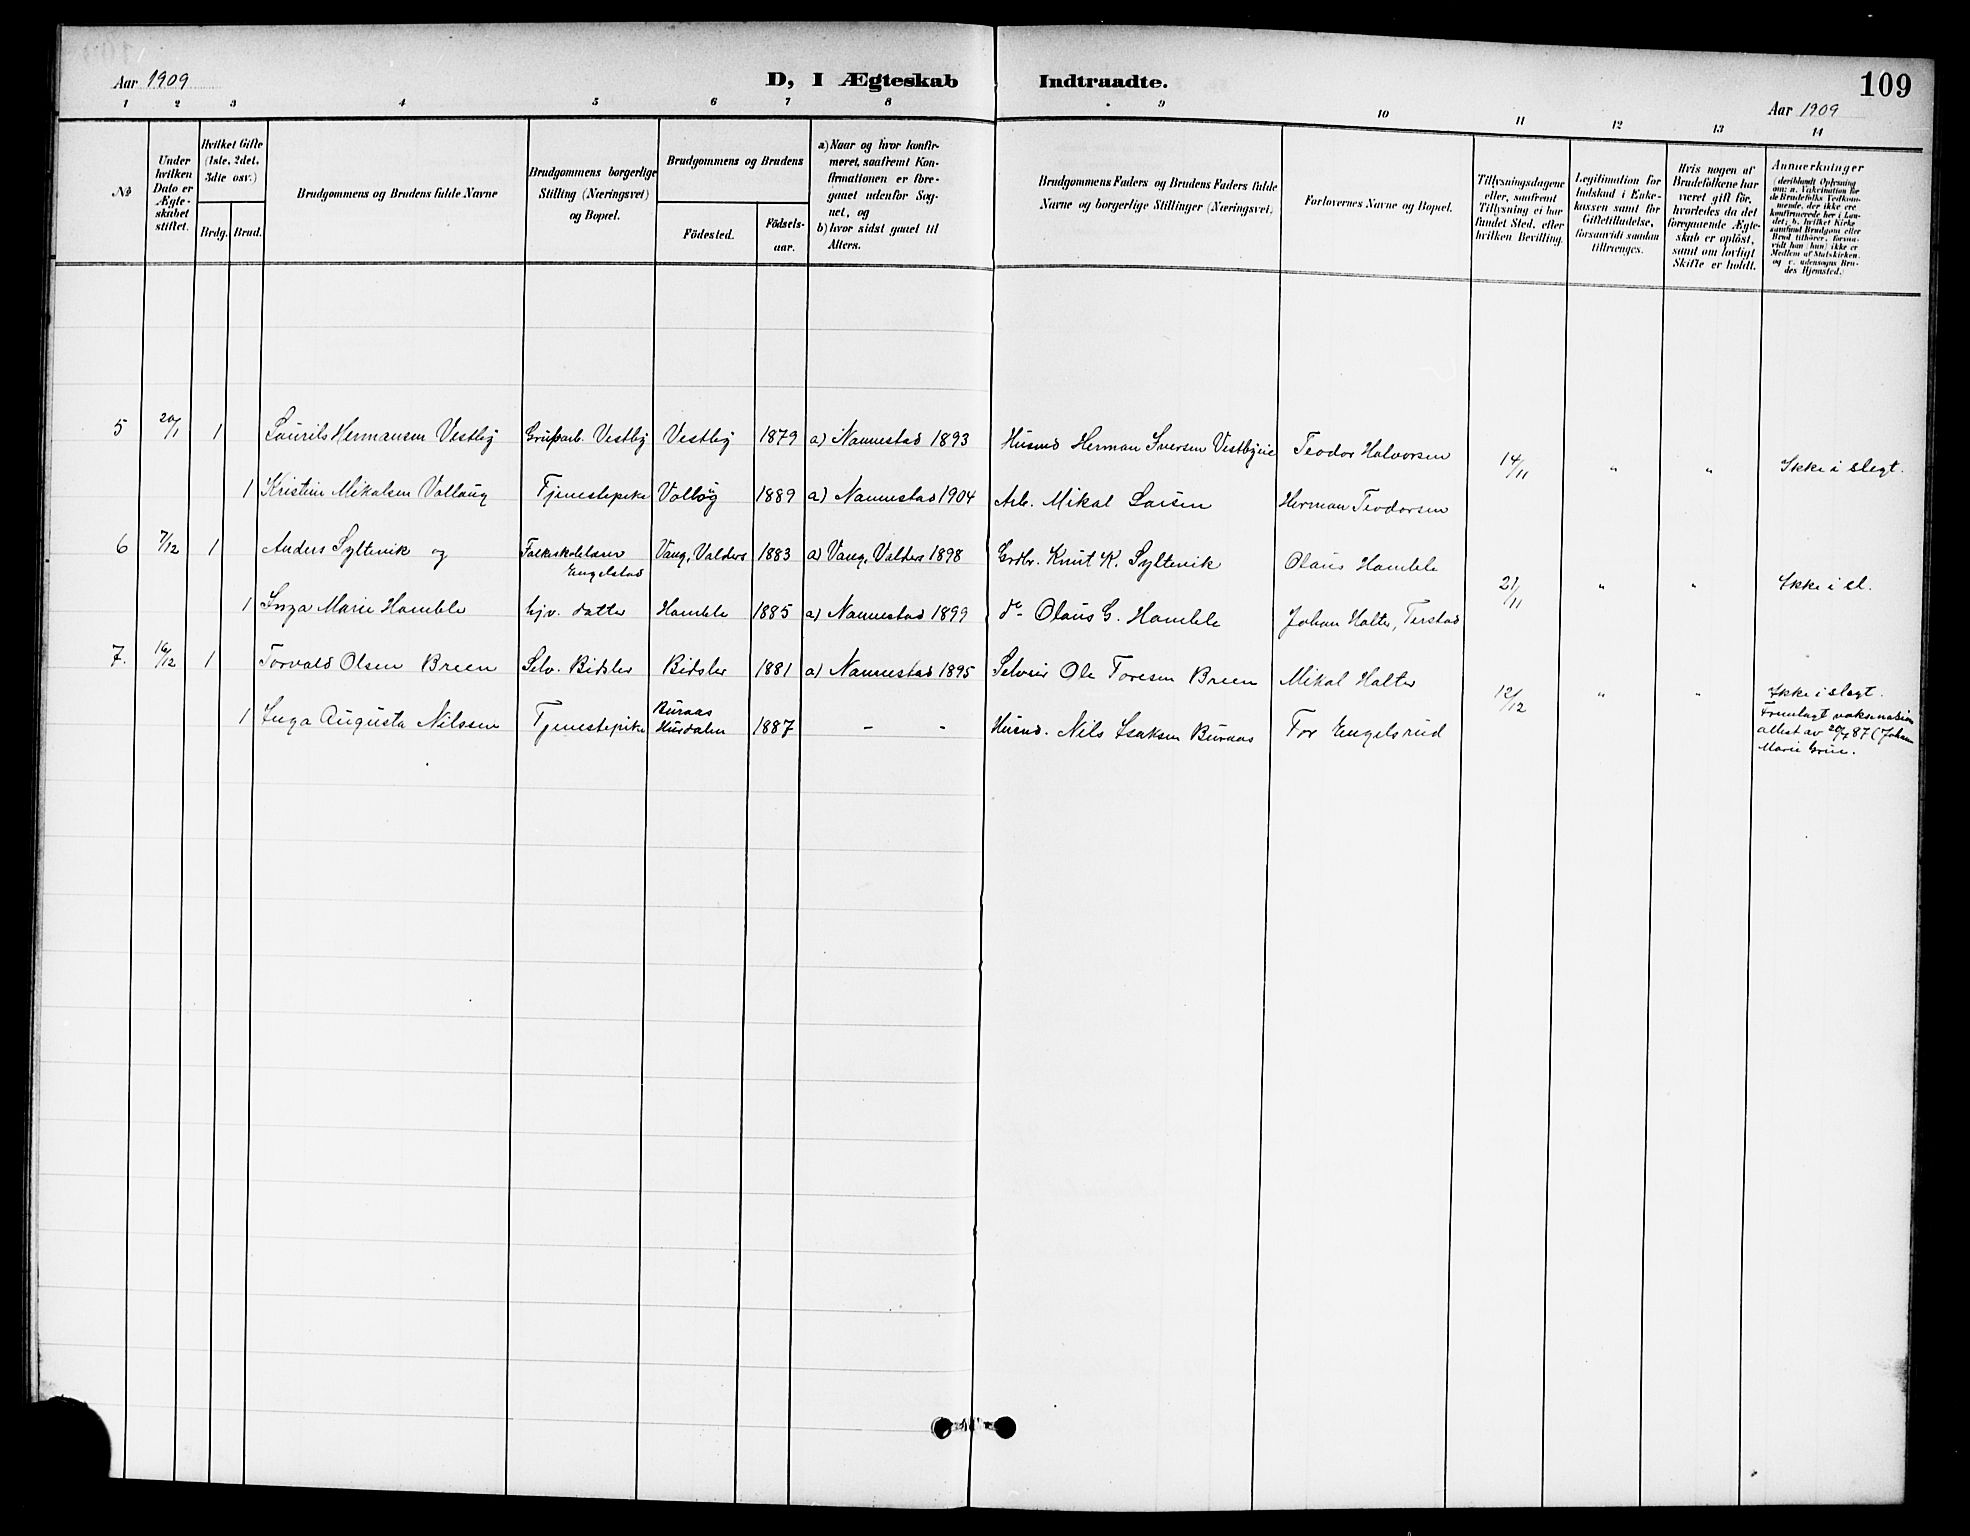 Aar 1909
D, I Ægteskab Indtraadte.
109
Aar 1909
1 2 3 4 5 6 7 8 9 10 11 12 13 14
No
Under hvilken Dato er Ægteskabet stiftet.
Hvilket Gifte (1ste, 2det, 3die osv.)
Brdg. Brud.
Brudgommens og Brudens fulde Navne
Brudgommens borgerlige Stilling (Næringsvei) og Bopæl.
Brudgommens og Brudens
Födested.
Födsels-aar.
a) Naar og hvor konfir-
meret, saafremt Kon-
firmationen er fore-
gaaet udenfor Sog-
net, og
b) hvor sidst gaaet til
Alters.
Brudgommens Faders og Brudens Faders fulde
Navne og borgerlige Stillinger (Næringsvei)
Forlovernes Navne og Bopæl.
Tillysningsdagene
eller, saafremt
Tillysning ei har
fundet Sted, efter
hvilken Bevilling.
Legitimation for
Indskud i Enke-
kassen samt for
Giftetilladelse,
forsaavidt saadan
tiltrænges.
Hvis nogen af
Brudefolkene har
været gift för,
hvorledes da det
foregaaende Ægte-
skab er oplöst,
samt om lovligt
Skifte er holdt.
Anmærkninger
(deriblandt Oplysning
om: a. Vakcination for
de Brudefolks Vedkom-
mende, der ikke ere
konfirmerede her i Lan-
det; b. hvilket Kirke-
samfund Brudgom eller
Brud tilhörer, forsaa-
vidt han (hun) ikke er
Medlem af Statskirken,
og c. udensogns Bru-
des Hjemsted.)
5 20/1 1 Laurits Hermansen Vestby Grubarb. Vestby Vestby 1879 a) Nannestad 1893 Husmd Herman Iversen Vestbyeie Teodor Halvorsen 14/11 " " Ikke i slegt.
1 Kristine Mikalsen Vollaug Tjenestepike 1889 a) Nannestad 1904 Arb. Mikal Larsen Herman Teodorsen
6 7/12 1 Anders Syltevik og Vang, Valders 1883 a) Vang, Valders 1898 Grdbr. Knut K. Syltevik Olaus Hamble 21/11 " " Ikke i sl.
Engelstad
1 Inga Marie Hamble hjv. datter Hamble 1885 a) Nannestad 1899 do Olaus G. Hamble Johan Holter, Terstad
7. 16/12 1 Torvald Olsen Breen Selv. Bidsler Bidsler 1881 a) Nannestad 1895 Selveier Ole Toresen Breen Mikal Holter 12/12 " " Ikke i slegt.
1 Inga Augusta Nilssen Tjenestepike Buraas Husdalen 1887 - - Husmd. Nils Isaksen Buraas Tor Engelsrud Fremlagt vaksination
attest av 87 (Johan
Marie